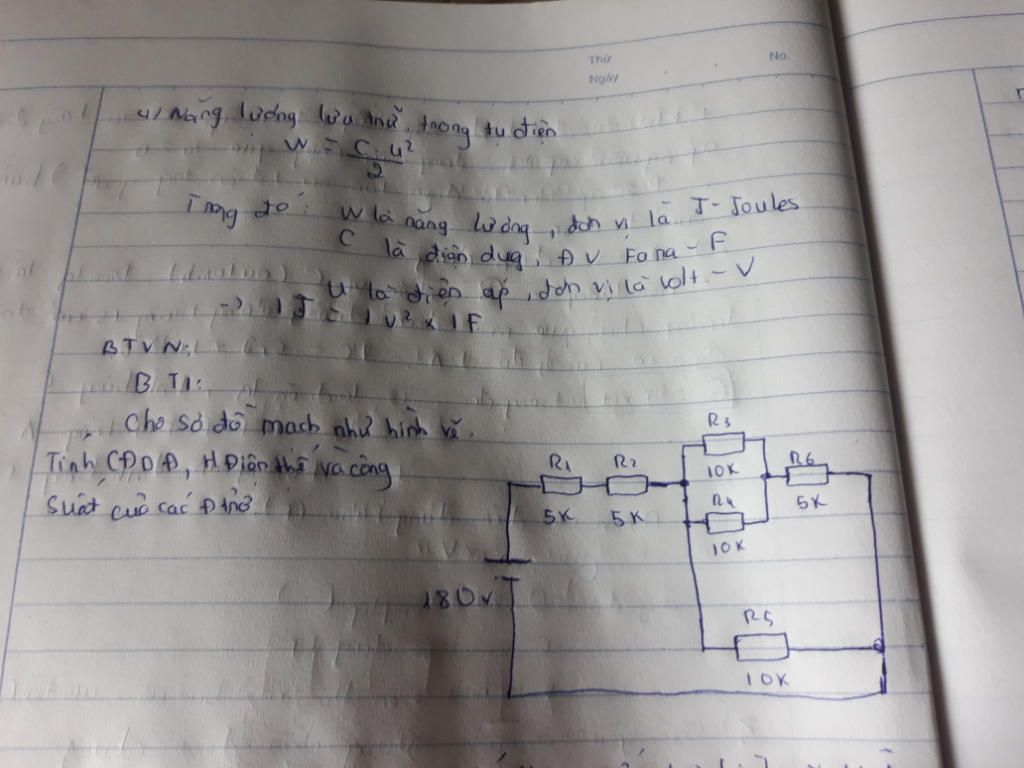 Thứ
No.
Ngày
4/ Năng lượng lưu trữ, trong tụ điện
W = C.U²
2
Trong đó: W là năng lượng, đơn vị là J - Joules
C là điện dụg, ĐV Fara - F
U là điện áp, đơn vị là Volt - V
=> 1 J = 1 V² x 1 F
BTVN:
BT1:
Cho sơ đồ mạch như hình vẽ.
Tính CĐDĐ, HĐiện thế và công
suất của các Đ trở
R3
10K
R1
R2
R6
5K
5K
5K
R4
10K
180V
R5
10K